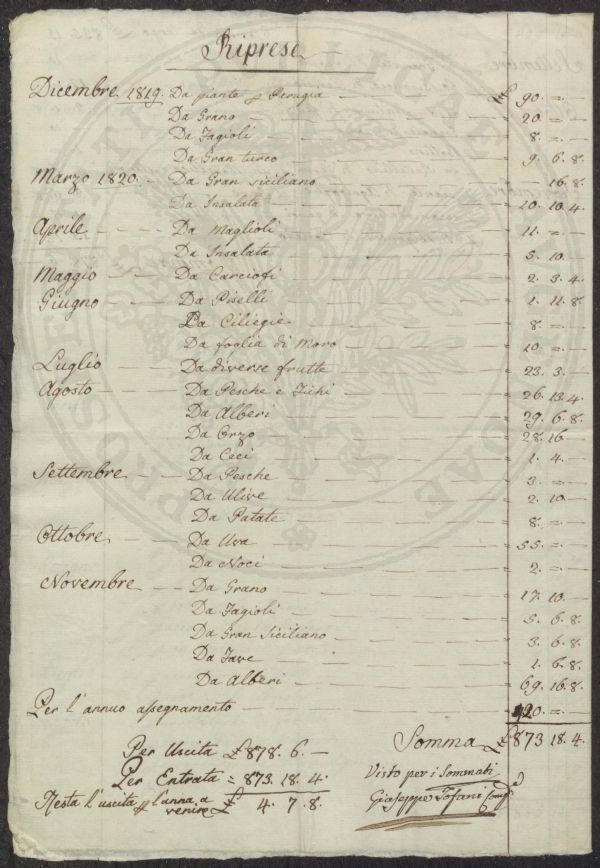 Riprese
Dicembre 1819. Da piante p Perugia — £ 90. = . —
Da Grano — 20 = . —
Da Fagioli — 8. = . —
Da Gran turco — 9. 6. 8.
Marzo 1820. — Da Gran siciliano — 16. 8.
Da Insalata — 20. 10. 4.
Aprile — Da Maglioli — 11. = . —
Da Insalata — 5. 10. —
Maggio — Da Carciofi — 2. 3. 4.
Giugno — Da Piselli — 1. 11. 8.
Da Ciliegie — 8. = . —
Da foglia di Moro — 10. = . —
Luglio — Da diverse frutte — 23. 3. —
Agosto — Da Pesche e Fichi — 26. 13. 4.
Da Alberi — 29. 6. 8.
Da Orzo — 28. 16. —
Da Ceci — 1. 4. —
Settembre — Da Pesche — 3. = . —
Da Ulive — 2. 10. —
Da Patate — 8. = . —
Ottobre — Da Uva — 55. = . —
Da Noci — 2. = . —
Novembre — Da Grano — 17. 10. —
Da Fagioli — 5. 6. 8.
Da Gran Siciliano — 3. 6. 8.
Da Fave — 1. 6. 8.
Da Alberi — 69. 16. 8.
Per l'annuo assegnamento — 420. = . —
Somma £ 873 18. 4.
Per Uscita £ 878. 6. —
Per Entrata = 873. 18. 4.
Resta l'uscita p l'anno a venire £ 4. 7. 8.
Visto per i Sommati
Giuseppe Tofani